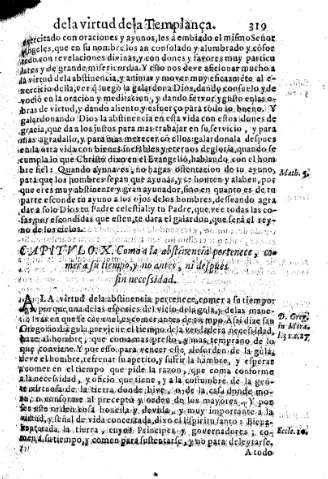 de la virtud de la Templança. 319
exercitado con oraciones y ayunos, les á embiado el mismo Señor
Angeles, que en su nombre los an consolado y alumbrado y cófor
tado con revelaciones divinas, y con dones y favores muy particu
lares y de grande misericordia. Y esto nos deve aficionar mucho a
la virtud de la abstinencia, y animar y mover muy eficazméte al e-
xercicio della, ver q̃ luego la galardona Dios, dando consuelo y de
voció en la oracion y meditacion, y dando fervor y gusto en las o-
bras de virtud, y dando aliento y esfuerço para todo lo bueno. Y
galardonando Dios la abstinencia en esta vida con estos dones de
gracia, que da a los justos para mas trabajar en su servicio, y para
mas agradalle, y para mas merecer, có ellos galardonala despues
en la otra vida con bienes inefables y eternos de gloria, quando se
cumpla lo que Christo dixo en el Evangelio, hablando con el hom
bre fiel: Quando ayunares, no hagas ostentacion de tu ayuno,
para que los hombres sepan que ayunas, y te honren y alaben, por
que eres muy abstinente y gran ayunador, sino en quanto es de tu
parte esconde tu ayuno a los ojos de los hombres, desseando agra
dar a solo Dios tu Padre celestial y tu Padre, que vee todas las co-
sas por escondidas que esten, te dara el galardon, que será el rey-
no de los cielos.
Math. 6.
CAPITULO. X. Como a la abstinencia pertenece, co-
mer a su tiempo, y no antes, ni despues
sin necessidad.
A LA virtud de la abstinencia pertenece, comer a su tiempo:
porque una de las especies del vicio de la gula, y de las mane-
ras con que se comete, es comer antes de tiempo. Assi dize san
Gregorio: la gula previene el tiempo de la verdadera necessidad,
haze al hombre, que coma mas presto, y mas temprano de lo
que conviene. Y por esso para vencer este desorden de la gula,
deve el hombre, refrenar su apetito, y sufrir la hambre, y esperar
a comer en el tiempo que pide la razon, que coma conforme
a la necessidad, y oficio que tiene, y a la costumbre de la gen-
te virtuosa de la tierra donde bive, o de la casa donde mo-
ra, o conforme al precepto y orden de los mayores. Y por
ser este orden cosa honesta y devida, y muy importante a la
virtud, y señal de vida concertada, dixo el Espiritu santo: Biena-
venturada la tierra, cuyos Principes y governadores co-
men a su tiempo, y comen para sustentarse, y no para deleytarse.
D. Greg.
in Mora.
l.31.c.27
Eccle. 10.
A todo